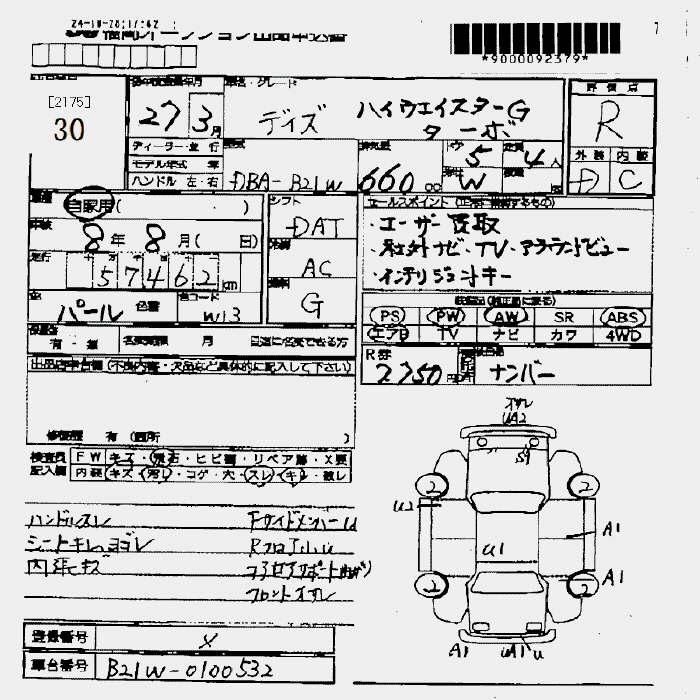 *9000092379*
[2175]
30
27 3月
車名・グレード
デイズ ハイウェイスターG
ターボ
評価点
R
外装 内装
D C
ディーラー・並行
モデル年式 年
ハンドル 左・右
型式
DBA-B21W
排気量
660 cc
ドア 5
定員 4人
W
自家用( )
車検
8年 8月( 日)
走行
57462km
シフト
DAT
冷房
AC
燃料
G
色 パール 色替
色コード
W13
セールスポイント
・ユーザー買取
・社外ナビ・TV・アラウンドビュー
・インテリジェントキー
PS PW AW SR ABS
エアB TV ナビ カワ 4WD
有・無 名義変更 月
R券
7750円
ナンバー
出品店申告欄(不良内容・欠品など具体的に記入して下さい)
修復歴 有(箇所 )
検査員
記入欄
FW キズ・飛石・ヒビ・リペア跡・X要
内装 キズ・汚レ・コゲ・穴・スレ・キレ・破レ
ハンドルスレ
シートキレ・ヨゴレ
内張キズ
FサイドメンバーU
RフロアU
コアセンサポート曲ガリ
フロントズレ
ズレ
UA2
2 2
U2
U1
A1
A1
2 2
A1 UA1 U
登録番号 X
車台番号 B21W-0100532